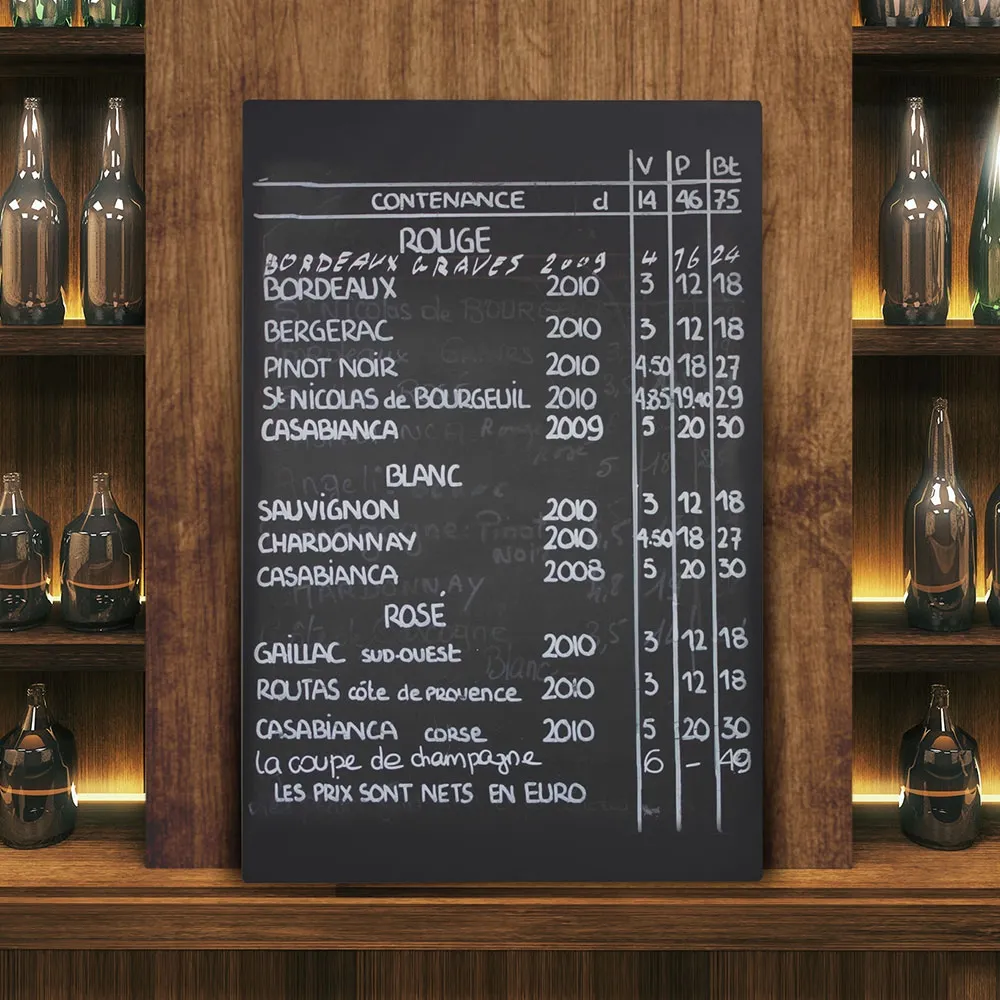 V P Bt
CONTENANCE cl 14 46 75
ROUGE
BORDEAUX GRAVES 2009 4 16 24
BORDEAUX 2010 3 12 18
BERGERAC 2010 3 12 18
PINOT NOIR 2010 4.50 18 27
St NICOLAS de BOURGEUIL 2010 4.85 19.40 29
CASABIANCA 2009 5 20 30
BLANC
SAUVIGNON 2010 3 12 18
CHARDONNAY 2010 4.50 18 27
CASABIANCA 2008 5 20 30
ROSÉ
GAILLAC SUD-OUEST 2010 3 12 18
ROUTAS côte de PROVENCE 2010 3 12 18
CASABIANCA CORSE 2010 5 20 30
la coupe de champagne 6 - 49
LES PRIX SONT NETS EN EURO